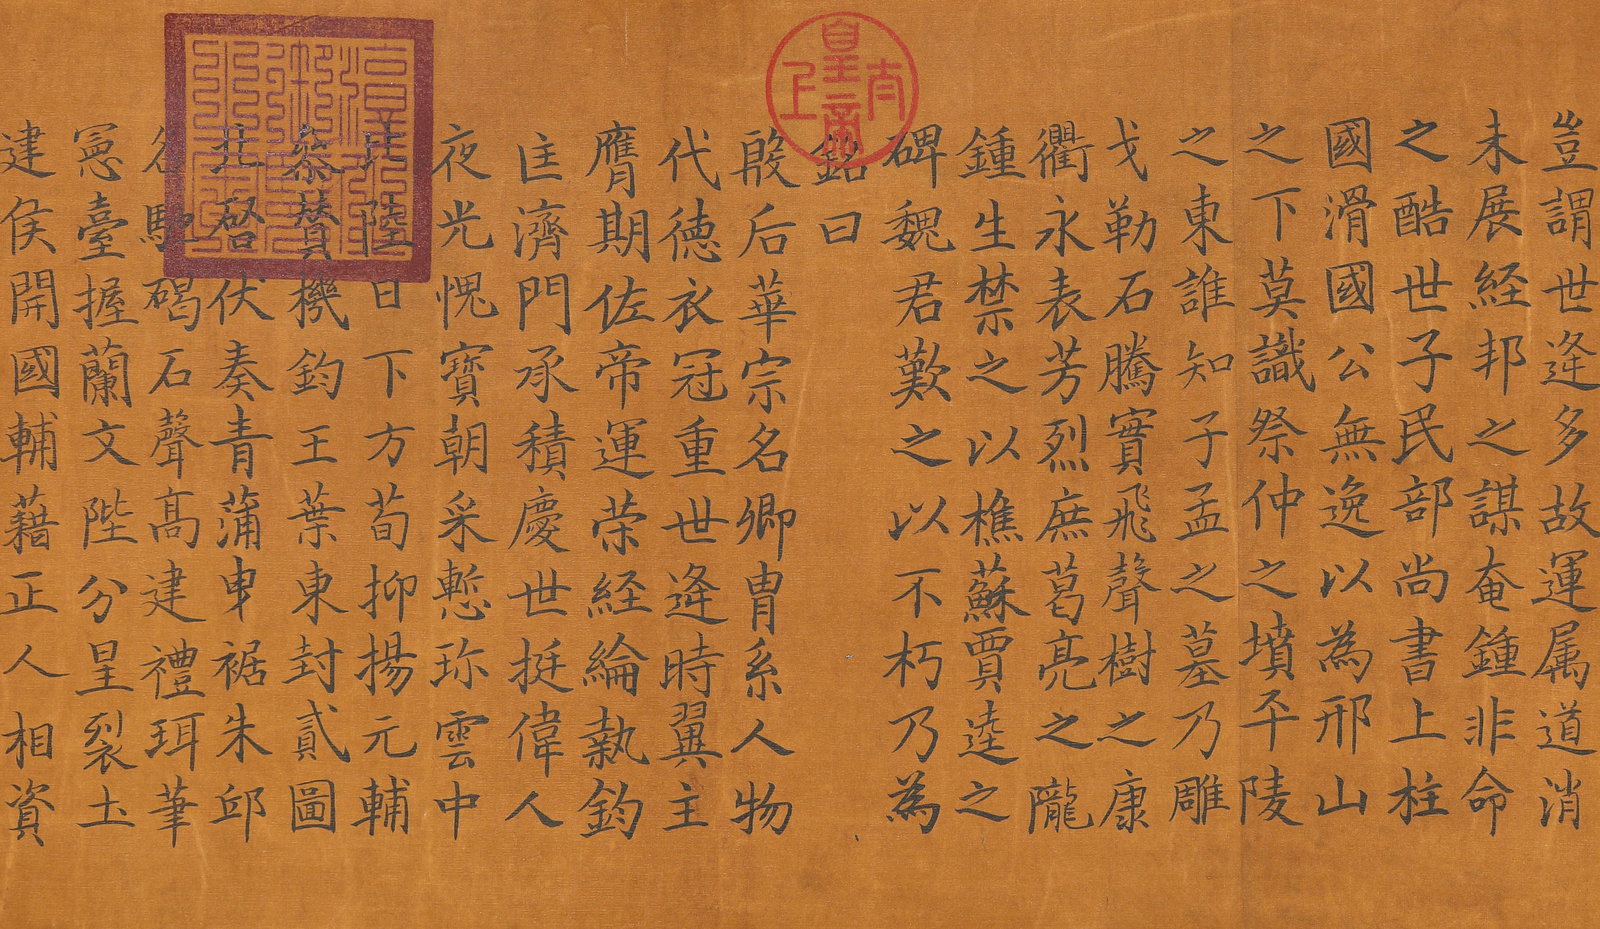 豈謂世逢多故運属道消
未展経邦之謀奄鍾非命
之酷世子民部尚書上柱
國滑國公無逸以為邢山
之下莫識祭仲之墳平陵
之東誰知子孟之墓乃雕
戈勒石騰實飛聲樹之康
衢永表芳烈庶葛亮之隴
鍾生禁之以樵蘇賈逵之
碑魏君歎之以不朽乃為
銘曰
殷后華宗名卿胄系人物
代德衣冠重世逢時翼主
膺期佐帝運荣経綸執鈞
匡濟門承積慶世挺偉人
夜光愧寶朝采慙珎雲中
比陸日下方荀抑揚元輔
叅賛機鈞王葉東封貳圖
北啓伏奏青蒲曳裾朱邱
名馳碣石聲髙建禮珥筆
憲臺握蘭文陛分星裂土
建侯開國輔藉正人相資
皇帝